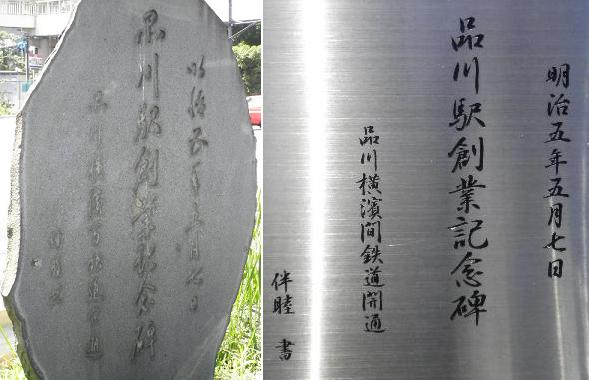 明治五年五月七日
品川駅創業記念碑
品川横濱間鉄道開通
伴睦書
明治五年五月七日
品川駅創業記念碑
品川横濱間鉄道開通
伴睦 書